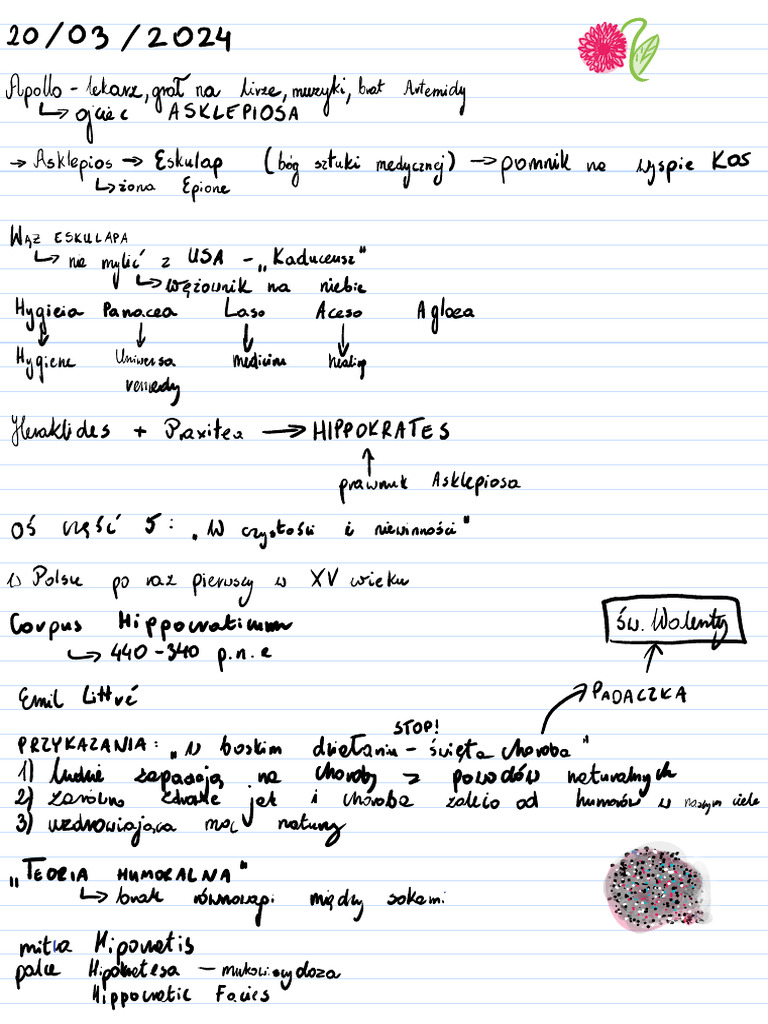 20/03/2024
Apollo - lekarz, grał na lirze, muzyki, brat Artemidy
↳ ojciec ASKLEPIOSA
→ Asklepios → Eskulap (bóg sztuki medycznej) → pomnik na wyspie KOS
↳ żona Epione
WĄŻ ESKULAPA
↳ nie mylić z USA - „Kaduceusz"
↳ wężownik na niebie
Hygieia Panacea Laso Aceso Aglaea
Hygiene Universa medicine healing
remedy
Heraklides + Praxitea → HIPPOKRATES
prawnuk Asklepiosa
oś część 5: „W czystości i niewinności"
W Polsce po raz pierwszy w XV wieku
Corpus Hippocraticum
św. Walenty
↳ 440-340 p.n.e
Emil Littré
PADACZKA
STOP!
PRZYKAZANIA: „W boskim działaniu - święta choroba"
1) ludzie zapadają na choroby z powodów naturalnych
2) zarówno zdrowie jak i choroba zależą od humorów w naszym ciele
3) uzdrowiająca moc natury
„TEORIA HUMORALNA"
↳ brak równowagi między sokami
mitra Hipocratis
palce Hipokratesa - mukowiscydoza
Hippocratic Facies